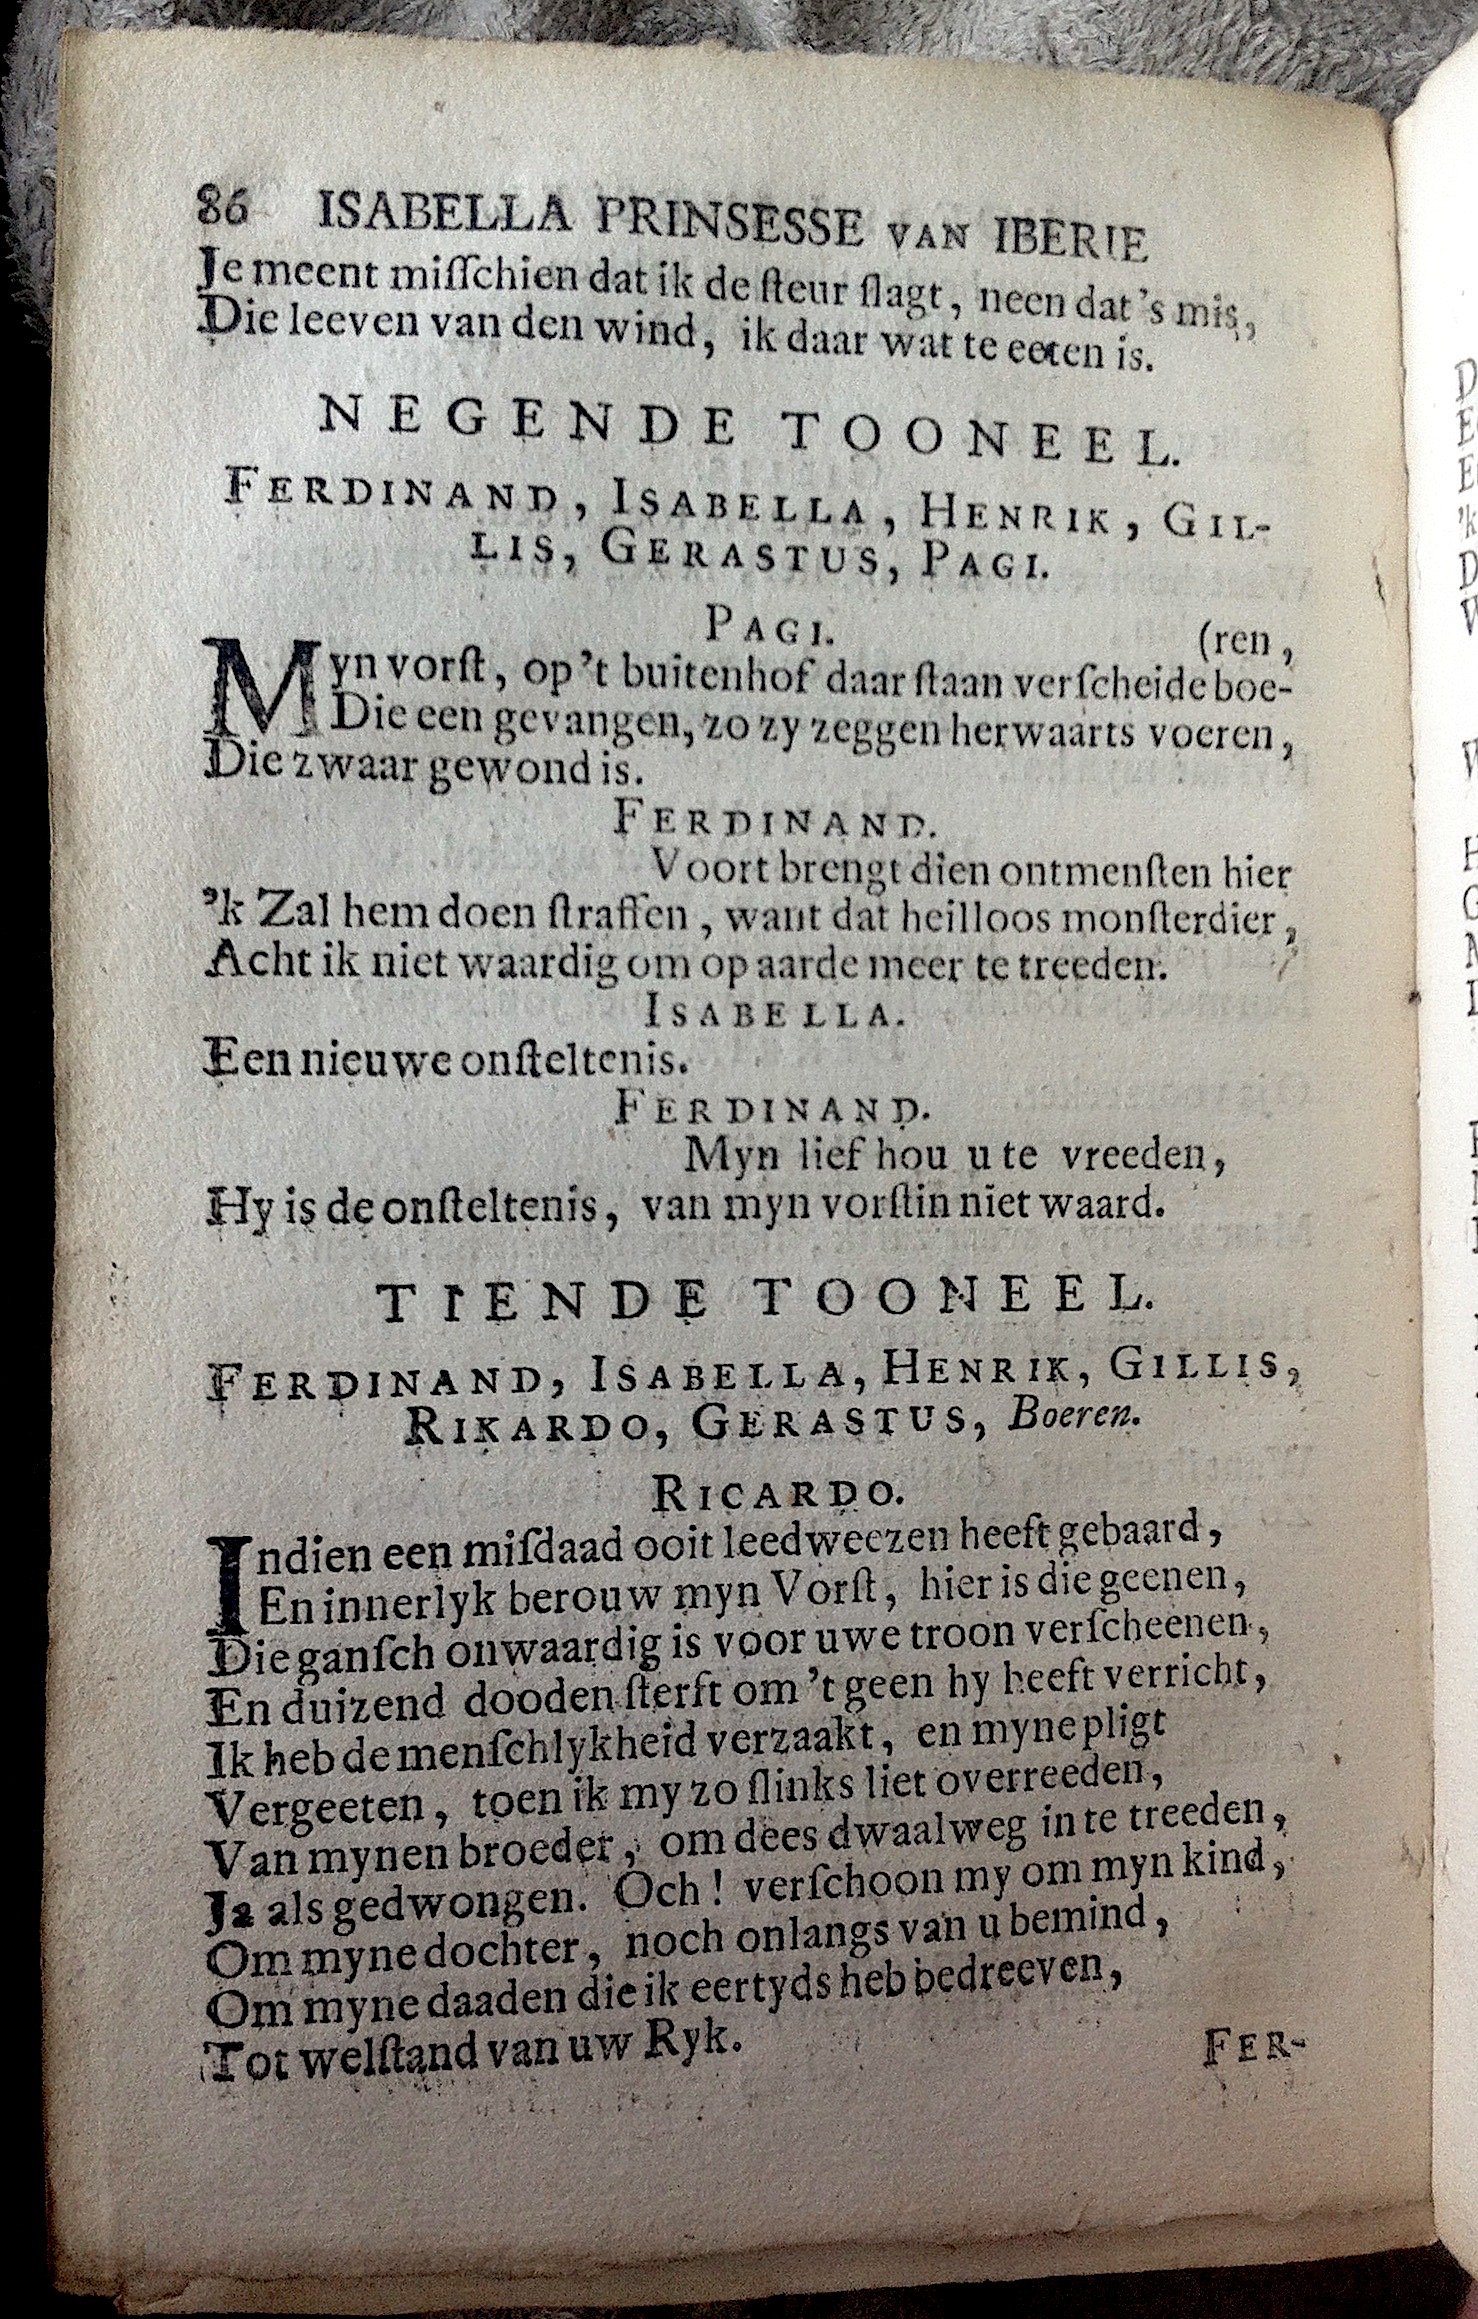 86 ISABELLA PRINSESSE VAN IBERIE
Je meent miſſchien dat ik de ſteur ſlagt, neen dat 's mis,
Die leeven van den wind, ik daar wat te eeten is.
NEGENDE TOONEEL.
FERDINAND, ISABELLA, HENRIK, GIL-
LIS, GERASTUS, PAGI.
PAGI. (ren,
Myn vorſt, op 't buitenhof daar ſtaan verſcheide boe-
Die een gevangen, zo zy zeggen herwaarts voeren,
Die zwaar gewond is.
FERDINAND.
Voort brengt dien ontmenſten hier
'k Zal hem doen ſtraffen, want dat heilloos monſterdier,
Acht ik niet waardig om op aarde meer te treeden.
ISABELLA.
Een nieuwe onſteltenis.
FERDINAND.
Myn lief hou u te vreeden,
Hy is de onſteltenis, van myn vorſtin niet waard.
TIENDE TOONEEL.
FERDINAND, ISABELLA, HENRIK, GILLIS,
RIKARDO, GERASTUS, Boeren.
RICARDO.
Indien een miſdaad ooit leedweezen heeft gebaard,
En innerlyk berouw myn Vorſt, hier is die geenen,
Die ganſch onwaardig is voor uwe troon verſcheenen,
En duizend dooden ſterft om 't geen hy heeft verricht,
Ik heb de menſchlykheid verzaakt, en myne pligt
Vergeeten, toen ik my zo ſlinks liet overreeden,
Van mynen broeder, om dees dwaalweg in te treeden,
Ja als gedwongen. Och! verſchoon my om myn kind,
Om myne dochter, noch onlangs van u bemind,
Om myne daaden die ik eertyds heb bedreeven,
Tot welſtand van uw Ryk.
FER-